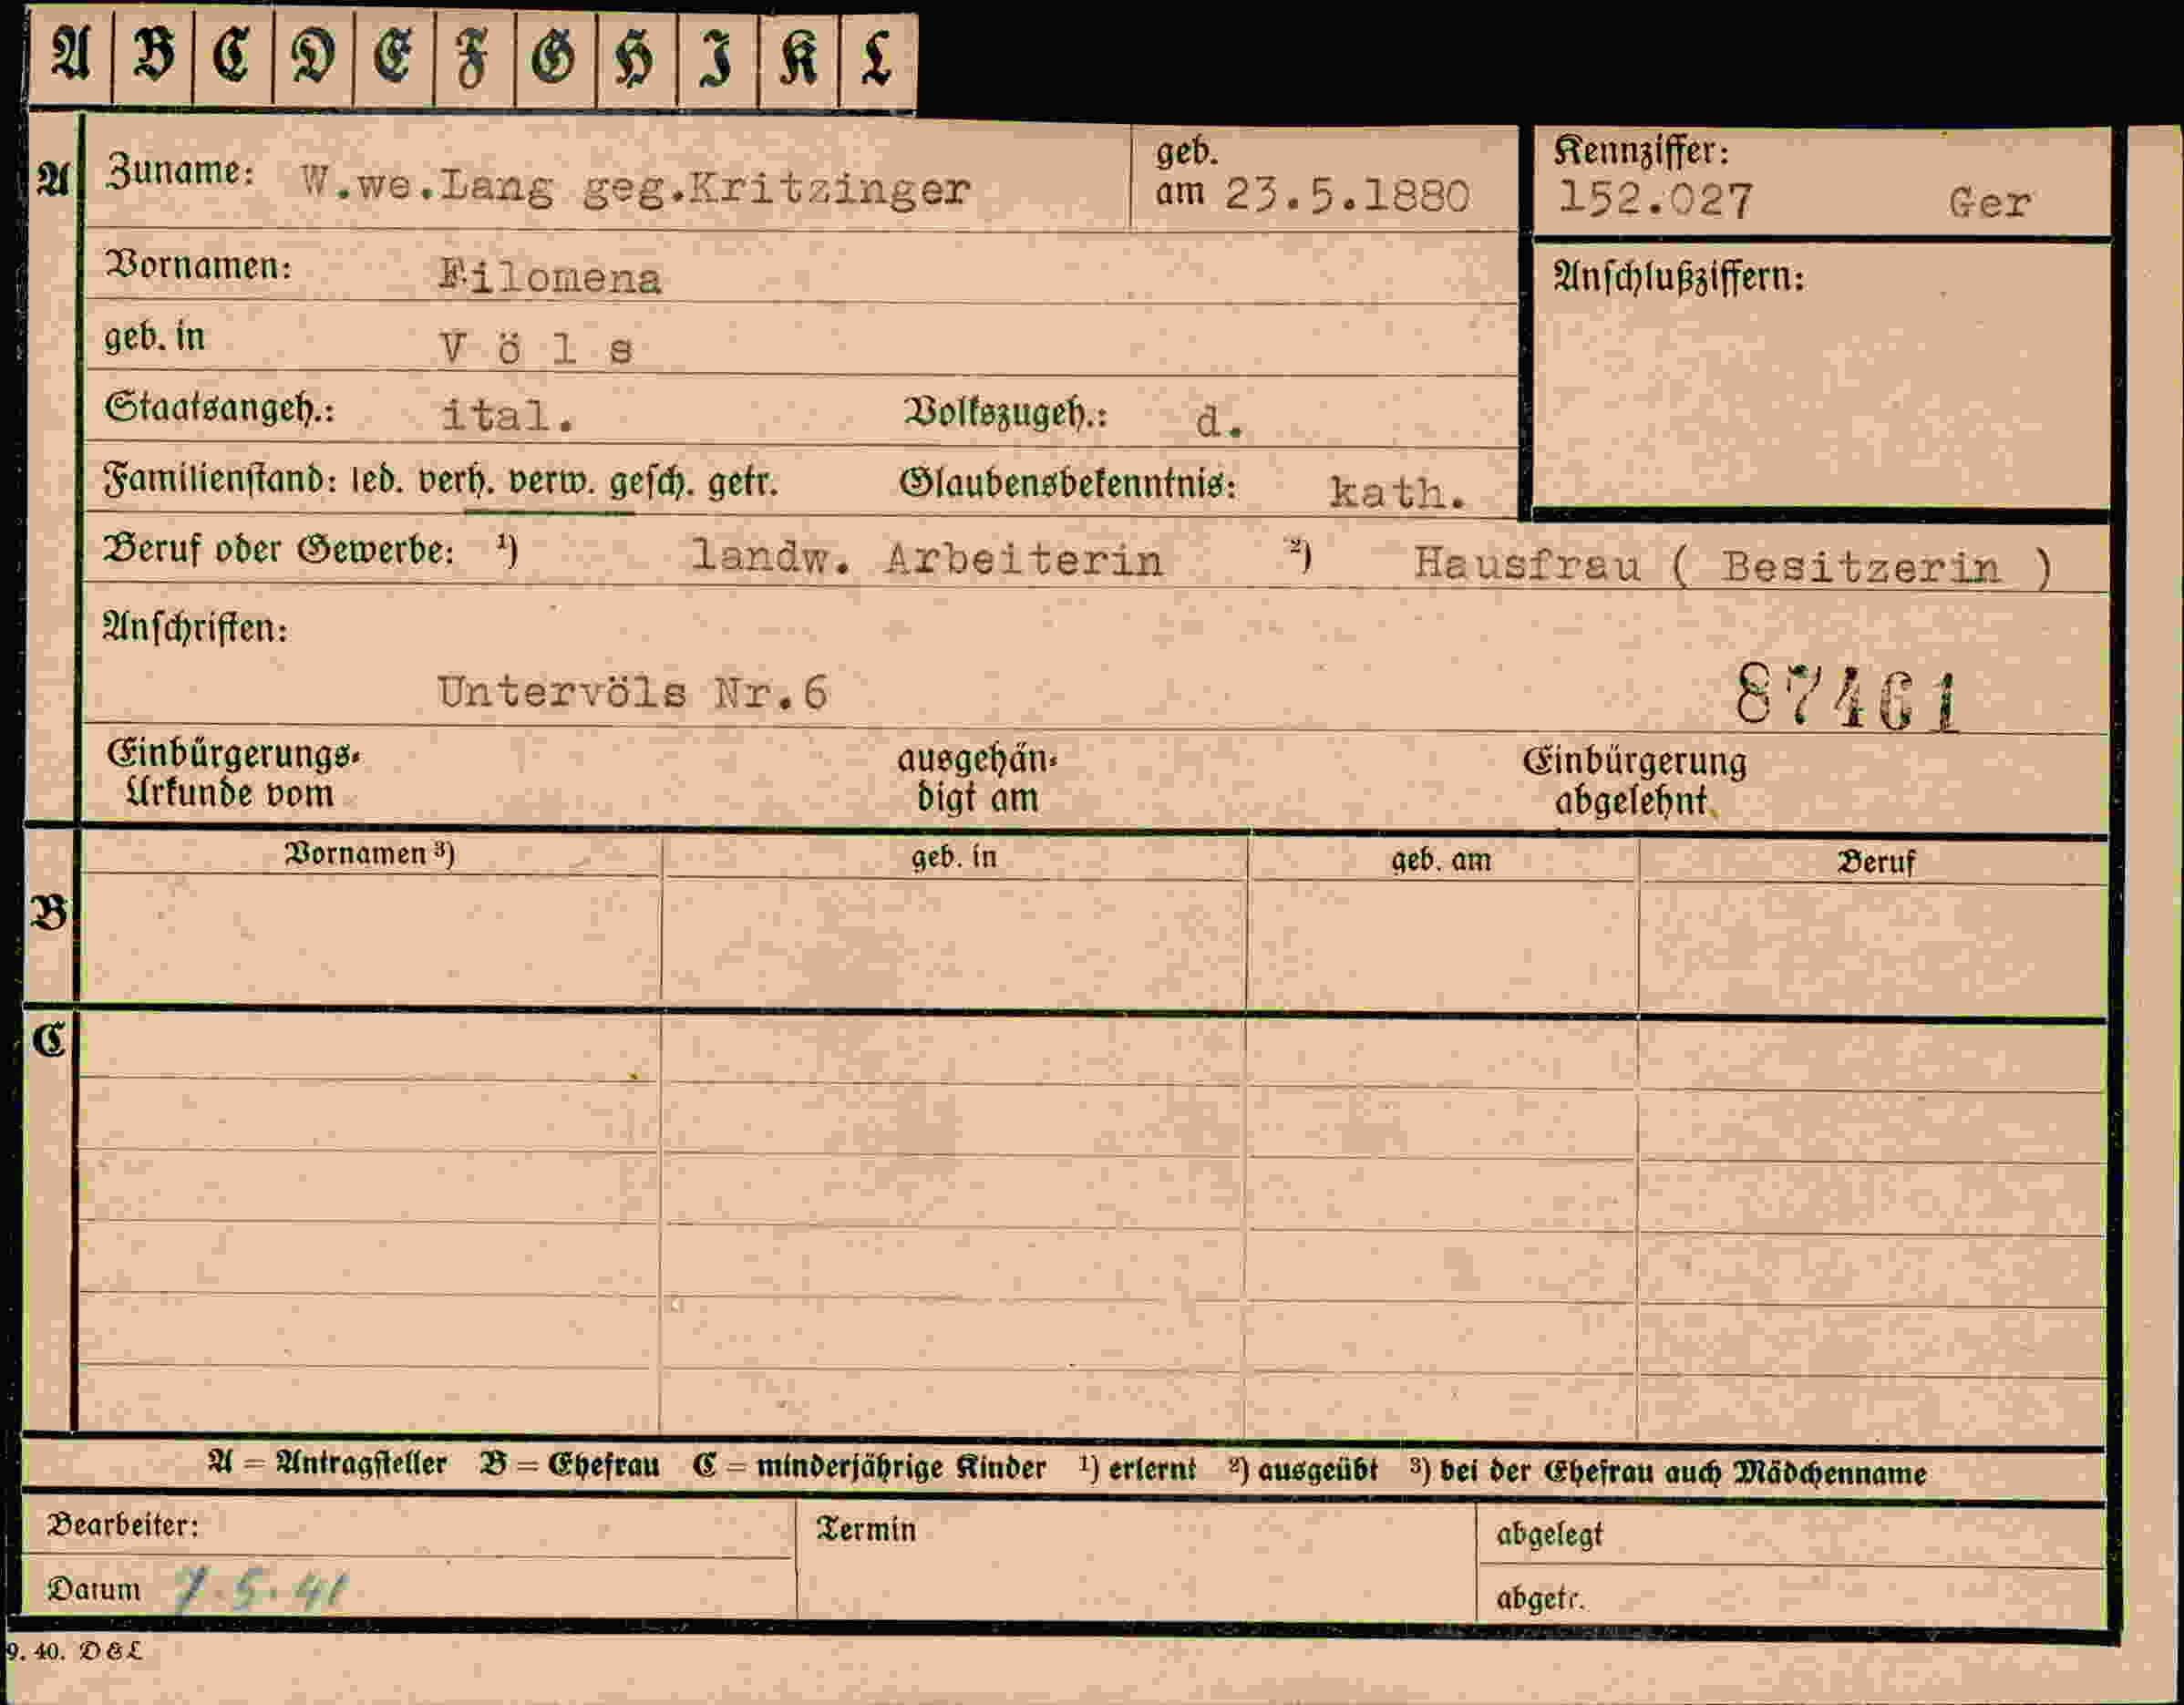 A B C D E F G H I K L
A Zuname: W.we.Lang geg.Kritzinger geb. am 23.5.1880 Kennziffer: 152.027 Ger
Vornamen: Filomena Anschlußziffern:
geb. in V ö l s
Staatsangeh.: ital. Volkszugeh.: d.
Familienstand: led. verh. verw. gesch. getr. Glaubensbekenntnis: kath.
Beruf oder Gewerbe: ¹) landw. Arbeiterin ²) Hausfrau ( Besitzerin )
Anschriften:
Untervöls Nr.6 87461
Einbürgerungs- ausgehän- Einbürgerung
Urkunde vom digt am abgelehnt
Vornamen ³) geb. in geb. am Beruf
B
C
A = Antragsteller B = Ehefrau C = minderjährige Kinder ¹) erlernt ²) ausgeübt ³) bei der Ehefrau auch Mädchenname
Bearbeiter: Termin abgelegt
Datum 7.5.41 abgetr.
9. 40. D&L